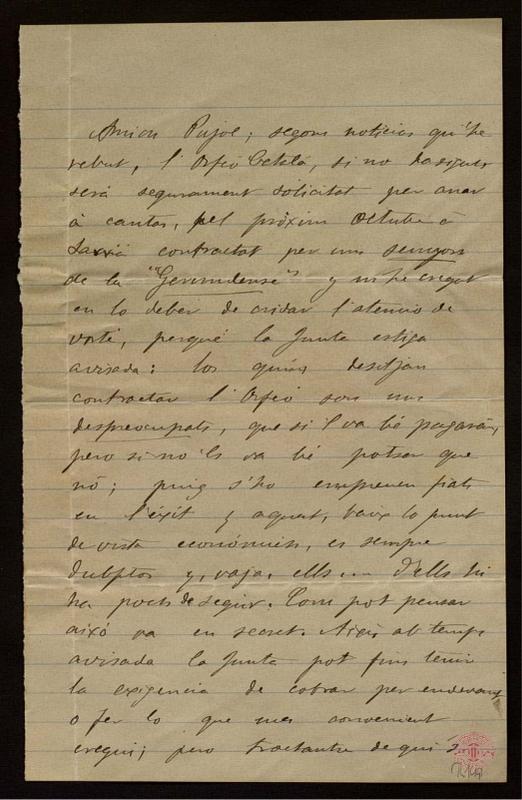 Amich Pujol; segons noticias qu'he
rebut, l'Orfeó Catalá, si no ha sigut
será segurament solicitat per anar
á cantar, pel próxim Octubre á
contractat per uns senyors
de la "Gerundense" y m'he cregut
en lo deber de cridar l'atenció de
vosté, perqué la Junta estiga
avisada: los quins desitjan
contractar l'Orfeó son uns
despreocupats, que si 'l va bé pagarán,
pero si no 'ls va bé potser que
nó; puig s'ho emprenen fiats
en l'éxit y aquest, baix lo punt
de vista económich, es sempre
dubptós y, vaja, ells.... d'ells hi
ha poch de segur. Com pot pensar
aixó va en secret. Aixís ab temps
avisada la Junta pot fins tenir
la exigencia de cobrar per endevant
o fer lo que mes convenient
cregui; pero tractantse de qui s